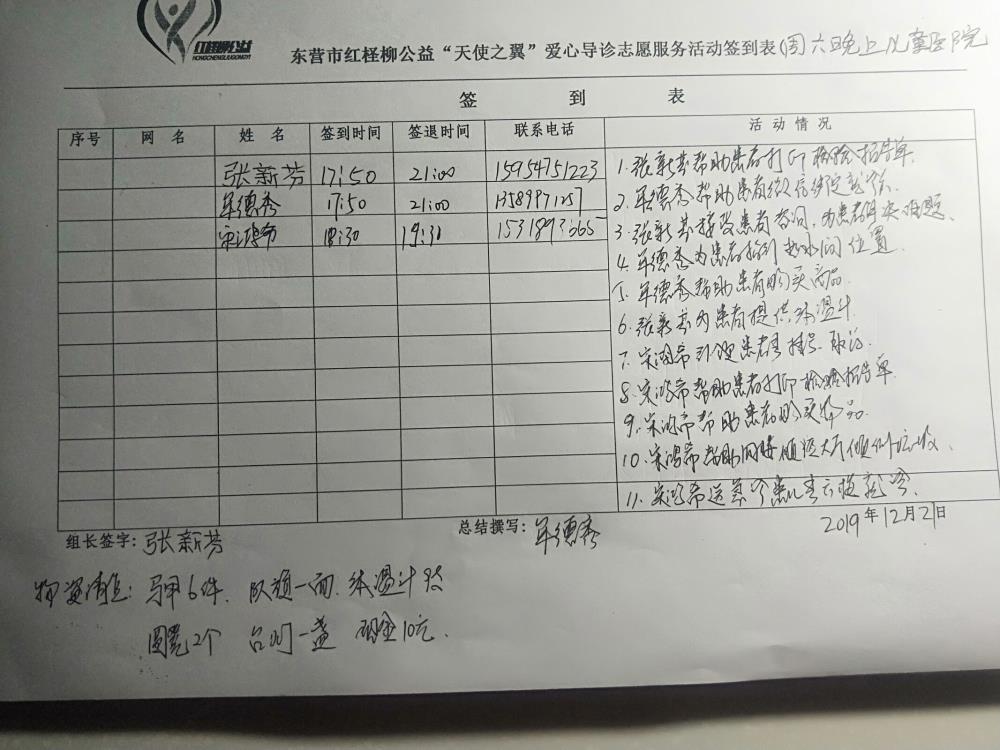 红柽柳公益
HONGCHENGLIUGONGYI
东营市红柽柳公益“天使之翼”爱心导诊志愿服务活动签到表(周六晚上儿童医院
签 到 表
序号 网 名 姓 名 签到时间 签退时间 联系电话 活动情况
张新芬 17:50 21:00 15954751223
牟德秀 17:50 21:00
18:30 19:31
1.张新芬帮助患者打印检验报告单.
2.牟德秀帮助患者微信绑定就诊.
3.张新芬接受患者咨询,为患者解决问题.
4.牟德秀为患者指引热水间位置
5.牟德秀帮助患者购买商品.
6.张新芬为患者提供体温计.
7.宋鸿希引领患者挂号.
8.宋鸿希帮助患者打印检验报告单.
9.宋鸿希帮助患者购买
10.宋鸿希帮助
11.宋鸿希送
组长签字:张新芬 总结撰写:牟德秀 2019年12月21日
物资清点:马甲6件. 队旗一面.体温计9支
圆凳2个 台灯一盏 现金10元.